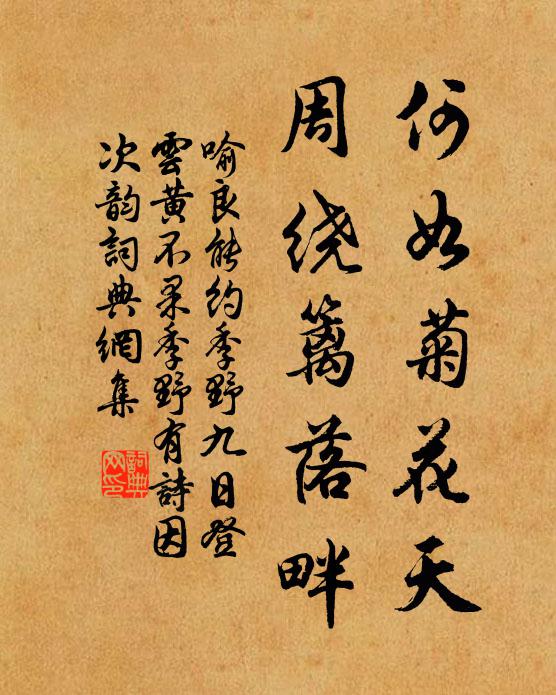 何如菊花天
周绕篱落畔
喻良能约季野九日登
雲黄不果季野有詩因
次韵詞典網集
詞典網印